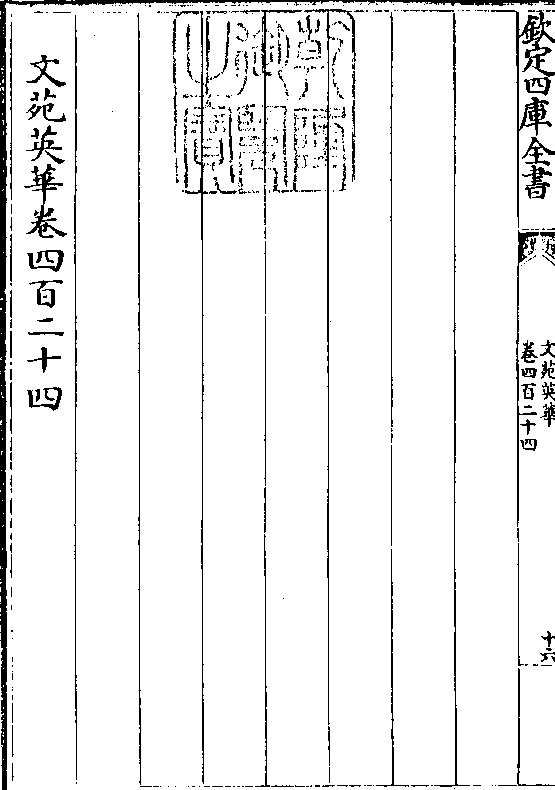 欽定四庫全書
文苑英華
卷四百二十四
十六
乾隆御覽之寶
文苑英華卷四百二十四